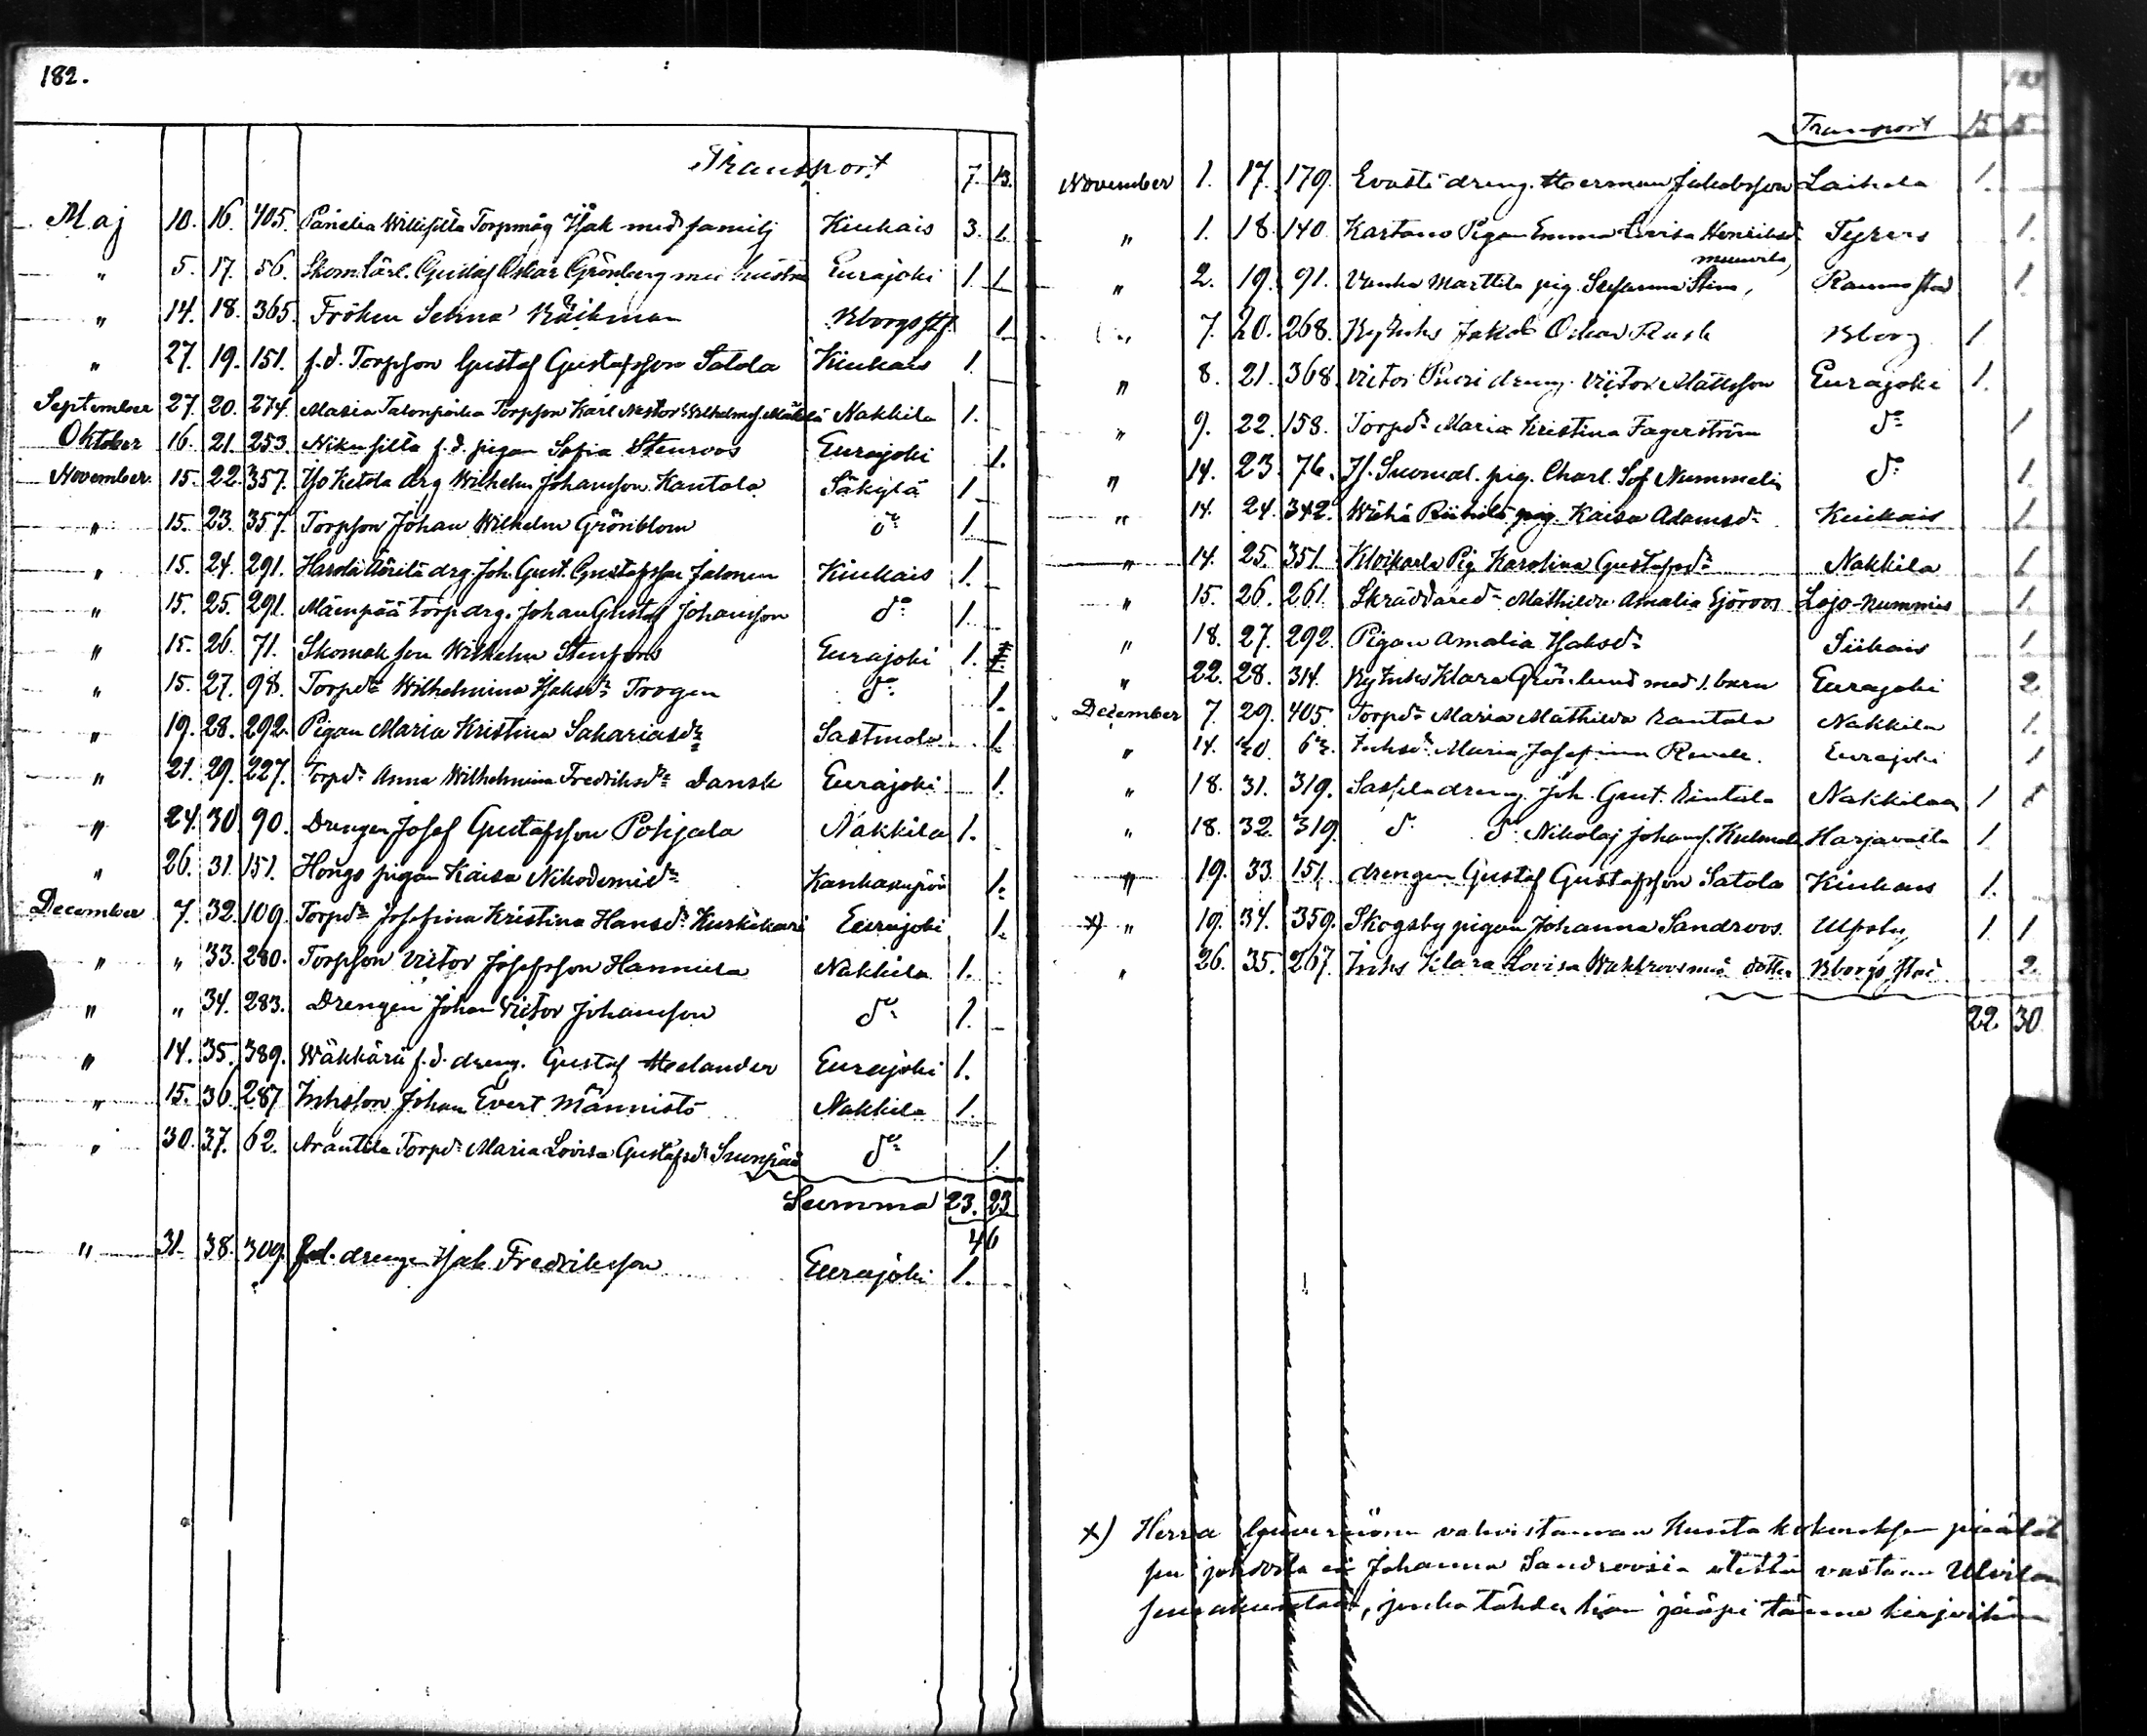 182.
Transport 7. 13.
Maj 10. 16. 405. Panelia Willisillä Torpmåg Isak med familj Kiukais 3. 1.
" 5. 17. 56. Skom.lärl. Gustaf Oskar Grönberg med hustru Eurajoki 1. 1.
" 14. 18. 365. Fröken Selma Bborgs st. 1.
" 27. 19. 151. f.d. Torpson Gustaf Gustafsson Satola Kiukais 1.
September 27. 20. 274. Masia Talonpoika Torpson Karl Nestor Wilhelmss. Nakkila 1.
Oktober 16. 21. 253. f.d. pigan Sofia Stenroos Eurajoki 1.
November 15. 22. 357. Iso Ketola drg Wilhelm Johansson Kantola Säkylä 1.
" 15. 23. 357. Torpson Johan Wilhelm Grönblom do 1.
" 15. 24. 291. Harola drg. Joh. Gust. Gustafsson Jalonen Kiukais 1.
" 15. 25. 291. Mäenpää torpdrg. Johan Gustaf Johansson do 1.
" 15. 26. 71. Skomak. son Wilhelm Eurajoki 1.
" 15. 27. 98. Torpdr Wilhelmina Isaksdr Trogen do 1.
" 19. 28. 292. Pigan Maria Kristina Sakariasdr Sastmola 1.
" 21. 29. 227. Torpdr Anna Wilhelmina Fredriksdr Dansk Eurajoki 1.
" 24. 30. 90. Drengen Josef Gustafsson Pohjala Nakkila 1.
" 26. 31. 151. Hongo pigan Kaisa Nikodemidr Kankaanpää 1.
December 7. 32. 109. Torpdr Josefina Kristina Hansdr Kurkikari Eurajoki 1.
" " 33. 280. Torpson Victor Josefsson Hannula Nakkila 1.
" " 34. 283. Drengen Johan Victor Johansson do 1.
" 14. 35. 389. Wäkkärä f.d. dreng. Gustaf Helander Eurajoki 1.
" 15. 36. 287. Inhsson Johan Evert Männistö Nakkila 1.
" 30. 37. 62. Arantila Torpdr Maria Lovisa Gustafsdr Suonpää do 1.
Summa 23. 23
46
" 31. 38. 309. drengen Isak Fredriksson Eurajoki 1.
Transport 15 15
November 1. 17. 179. Evasti dreng. Herman Jakobsson Laihela 1.
" 1. 18. 140. Kartano Pigan Emma Lovisa Henriksdr Tyrvis 1.
" 2. 19. 91. Vanha Marttila pig. Stefanna Stina, Raumo stad 1.
" 7. 20. 268. Jakob Oskar Rask Bborg 1
" 8. 21. 368. Victor dreng. Victor Mattsson Eurajoki 1.
" 9. 22. 158. Torpdr Maria Kristina Fagerström do 1
" 14. 23. 76. Suomal. pig. Charl. Sof. Nummelin do 1.
" 14. 24. 342. Wähä Riihilä pig. Kaisa Adamsdr Kiukais 1
" 14. 25. 351. Kloikarla Pig. Karolina Gustafsdr Nakkila 1
" 15. 26. 261. Skräddaredr Mathilda Amalia Sjöroos Lojo-Nummis 1.
" 18. 27. 292. Pigan Amalia Isaksdr Siikais 1
" 22. 28. 314. Klara Grönlund med 1. barn Eurajoki 2.
December 7. 29. 405. Torpdr Maria Mathilda Rantala Nakkila 1.
" 14. 30. 63. Inhsdr Maria Josefina Eurajoki 1
" 18. 31. 319. dreng. Joh. Gust. Rintala Nakkilaan 1
" 18. 32. 319. do do Nikolaj Johanss. Harjavalta 1
" 19. 33. 151. drengen Gustaf Gustafsson Satola Kiukais 1.
x) " 19. 34. 359. Skogsby pigan Johanna Sandroos Ulfsby 1. 1
" 26. 35. 267. Inhs Klara Lovisa Wahlroos med dotter Bborgs stad 2.
22. 30
x) Herra Guvernöörin vahvistaman Kuntakokouksen päätök
sen johdosta ei Johanna Sandroosia otettu vastaan Ulvilan
seurakuntaan, jonka tähden hän jääpi tänne kirjoihin